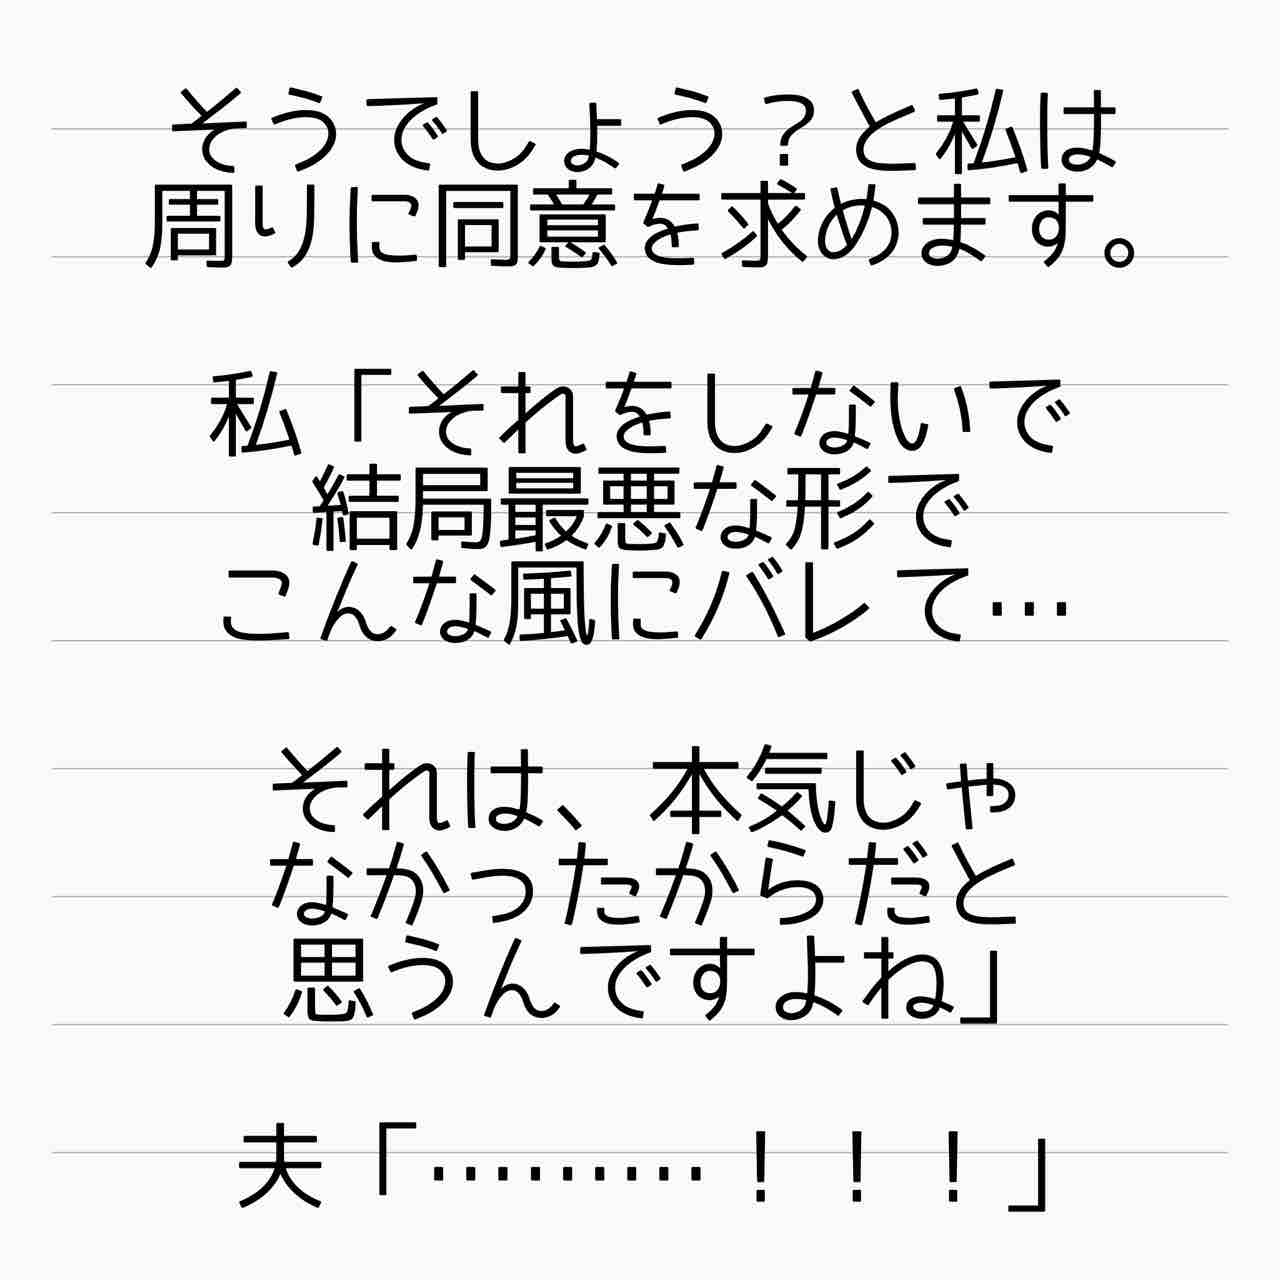 そうでしょう？と私は
周りに同意を求めます。
私「それをしないで
結局最悪な形で
こんな風にバレて…
それは、本気じゃ
なかったからだと
思うんですよね」
夫「………！！！」